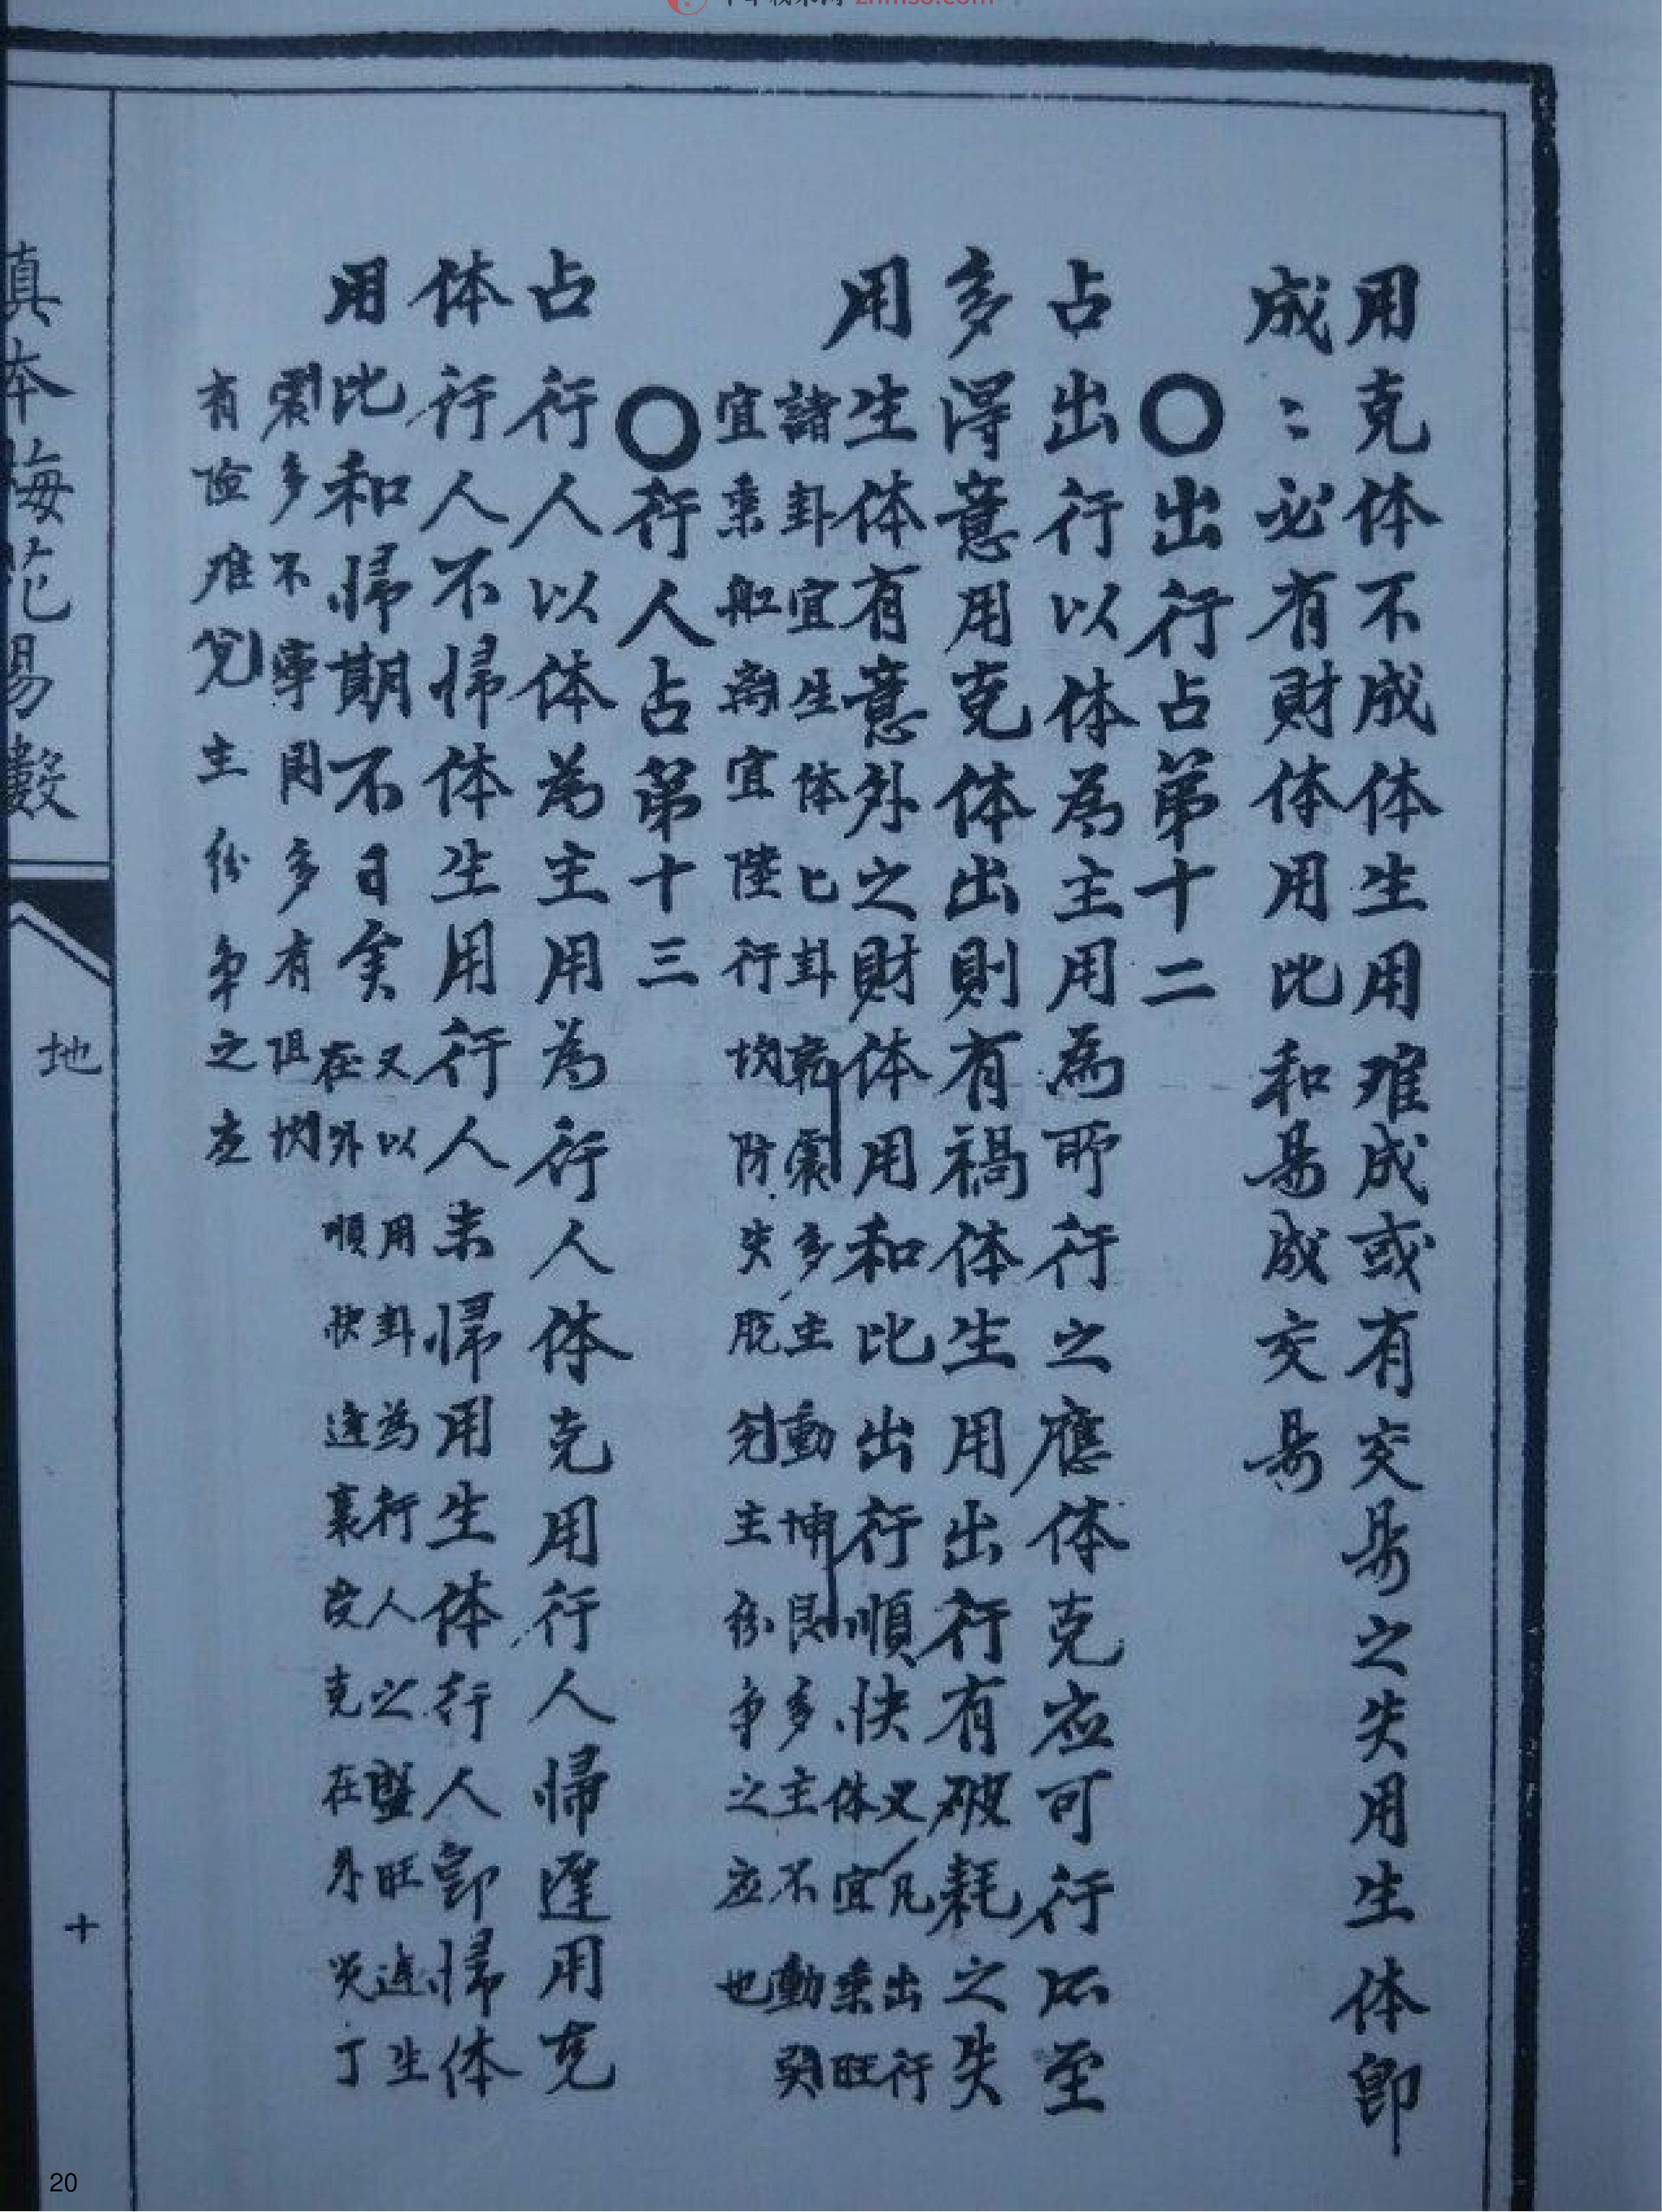 用克体不成体生用难成或有交易之失用生体即
成〻必有財体用比和易成交易
〇出行占第十二
占出行以体為主用為所行之應体克应可行所至
多得意用克体出則有禍体生用出行有破耗之失
用生体有意外之財体用和比出行順快
又凡出行
体宜乘旺
諸卦宜生体巳卦乾震多主動坤艮多主不動巽
宜乘舡离宜陸行坎防失脱兌主紛争之应也
〇行人占第十三
占行人以体為主用為行人体克用行人帰遲用克
体行人不帰体生用行人未帰用生体行人即帰体
用比和帰期不日矣
又以用卦為行人之盈旺逢生
在外順快逢衰受克在外灾
震多不寧艮多有阻坎
有险难兌主紛争之应
真本梅花易數
地
十
20
zhms8.com